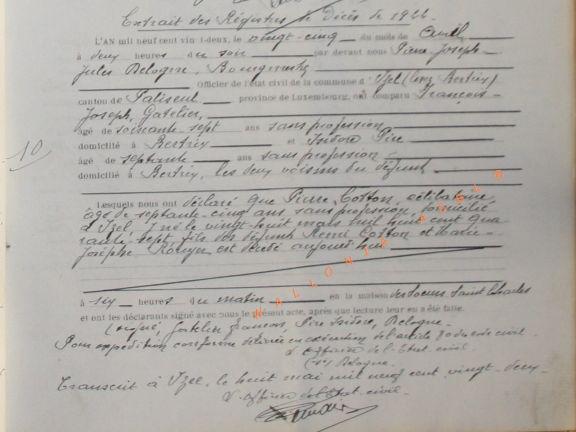 Extrait des Régistres de Décès de 1922.
L'AN mil neuf cent vingt-deux, le vingt-cinq du mois de Avril
à deux heures du soir par devant nous Pierre Joseph
Jules Pologne, Bourgmestre
Officier de l'état civil de la commune d'
canton de Paliseul province de Luxembourg, ont comparu François
Joseph, Gatelier,
âgé de soixante sept ans sans profession
domicilié à Bertrix et Isidore Pire
âgé de septante ans sans profession
domicilié à Bertrix, les deux voisins du défunt
10
Lesquels nous ont déclaré que Pierre Cotton, célibataire,
âgé de septante-cinq ans, sans profession, domicilié
à Uzel, né le vingt-huit mars mil huit cent qua
rante sept, fils des défunts Henri Cotton et Marie
Josephe est décédé aujourd'hui
à six heures du matin en la maison des Soeurs Saint Charles
et ont les déclarants signé avec nous le présent acte, après que lecture leur en a été faite.
(signé) Gatelier François, Pire Isidore, Pologne.
Pour expédition conforme délivrée en exécution de l'article 80 du code civil
L'officier de l'Etat civil.
(s) Pologne.
Transcrit à Uzel, le huit mai mil neuf cent vingt-deux
L'officier de l'Etat civil.
WALLONIE